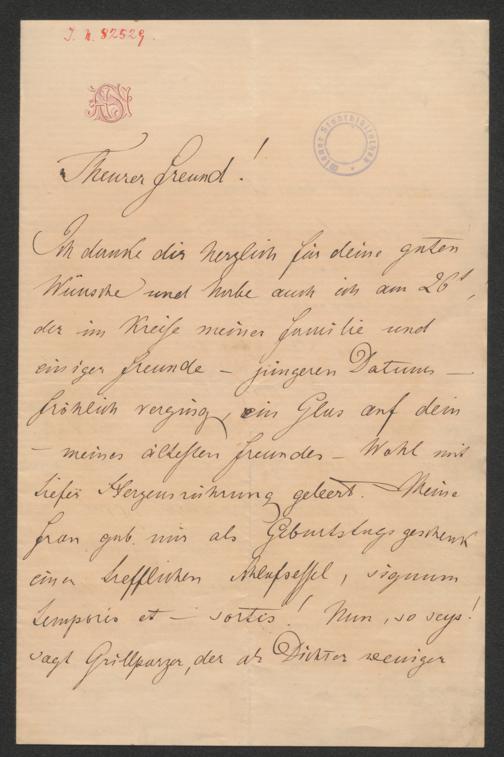 J. N. 82529.
Wiener Stadtbibliothek
Theurer Freund!
Ich danke dir herzlich für deine guten
Wünsche und habe auch ich am 26t,
der im Kreise meiner Familie und
einiger Freunde – jüngeren Datums –
fröhlich verging, ein Glas auf dein
– meines ältesten Freundes – Wohl mit
tiefer Herzensrührung geleert. Meine
Frau gab mir als Geburtstagsgeschenk
einen trefflichen Schlafsessel, signum
temporis et – sortis! Nun, so seys!
sagt Grillparzer, der als Dichter weniger